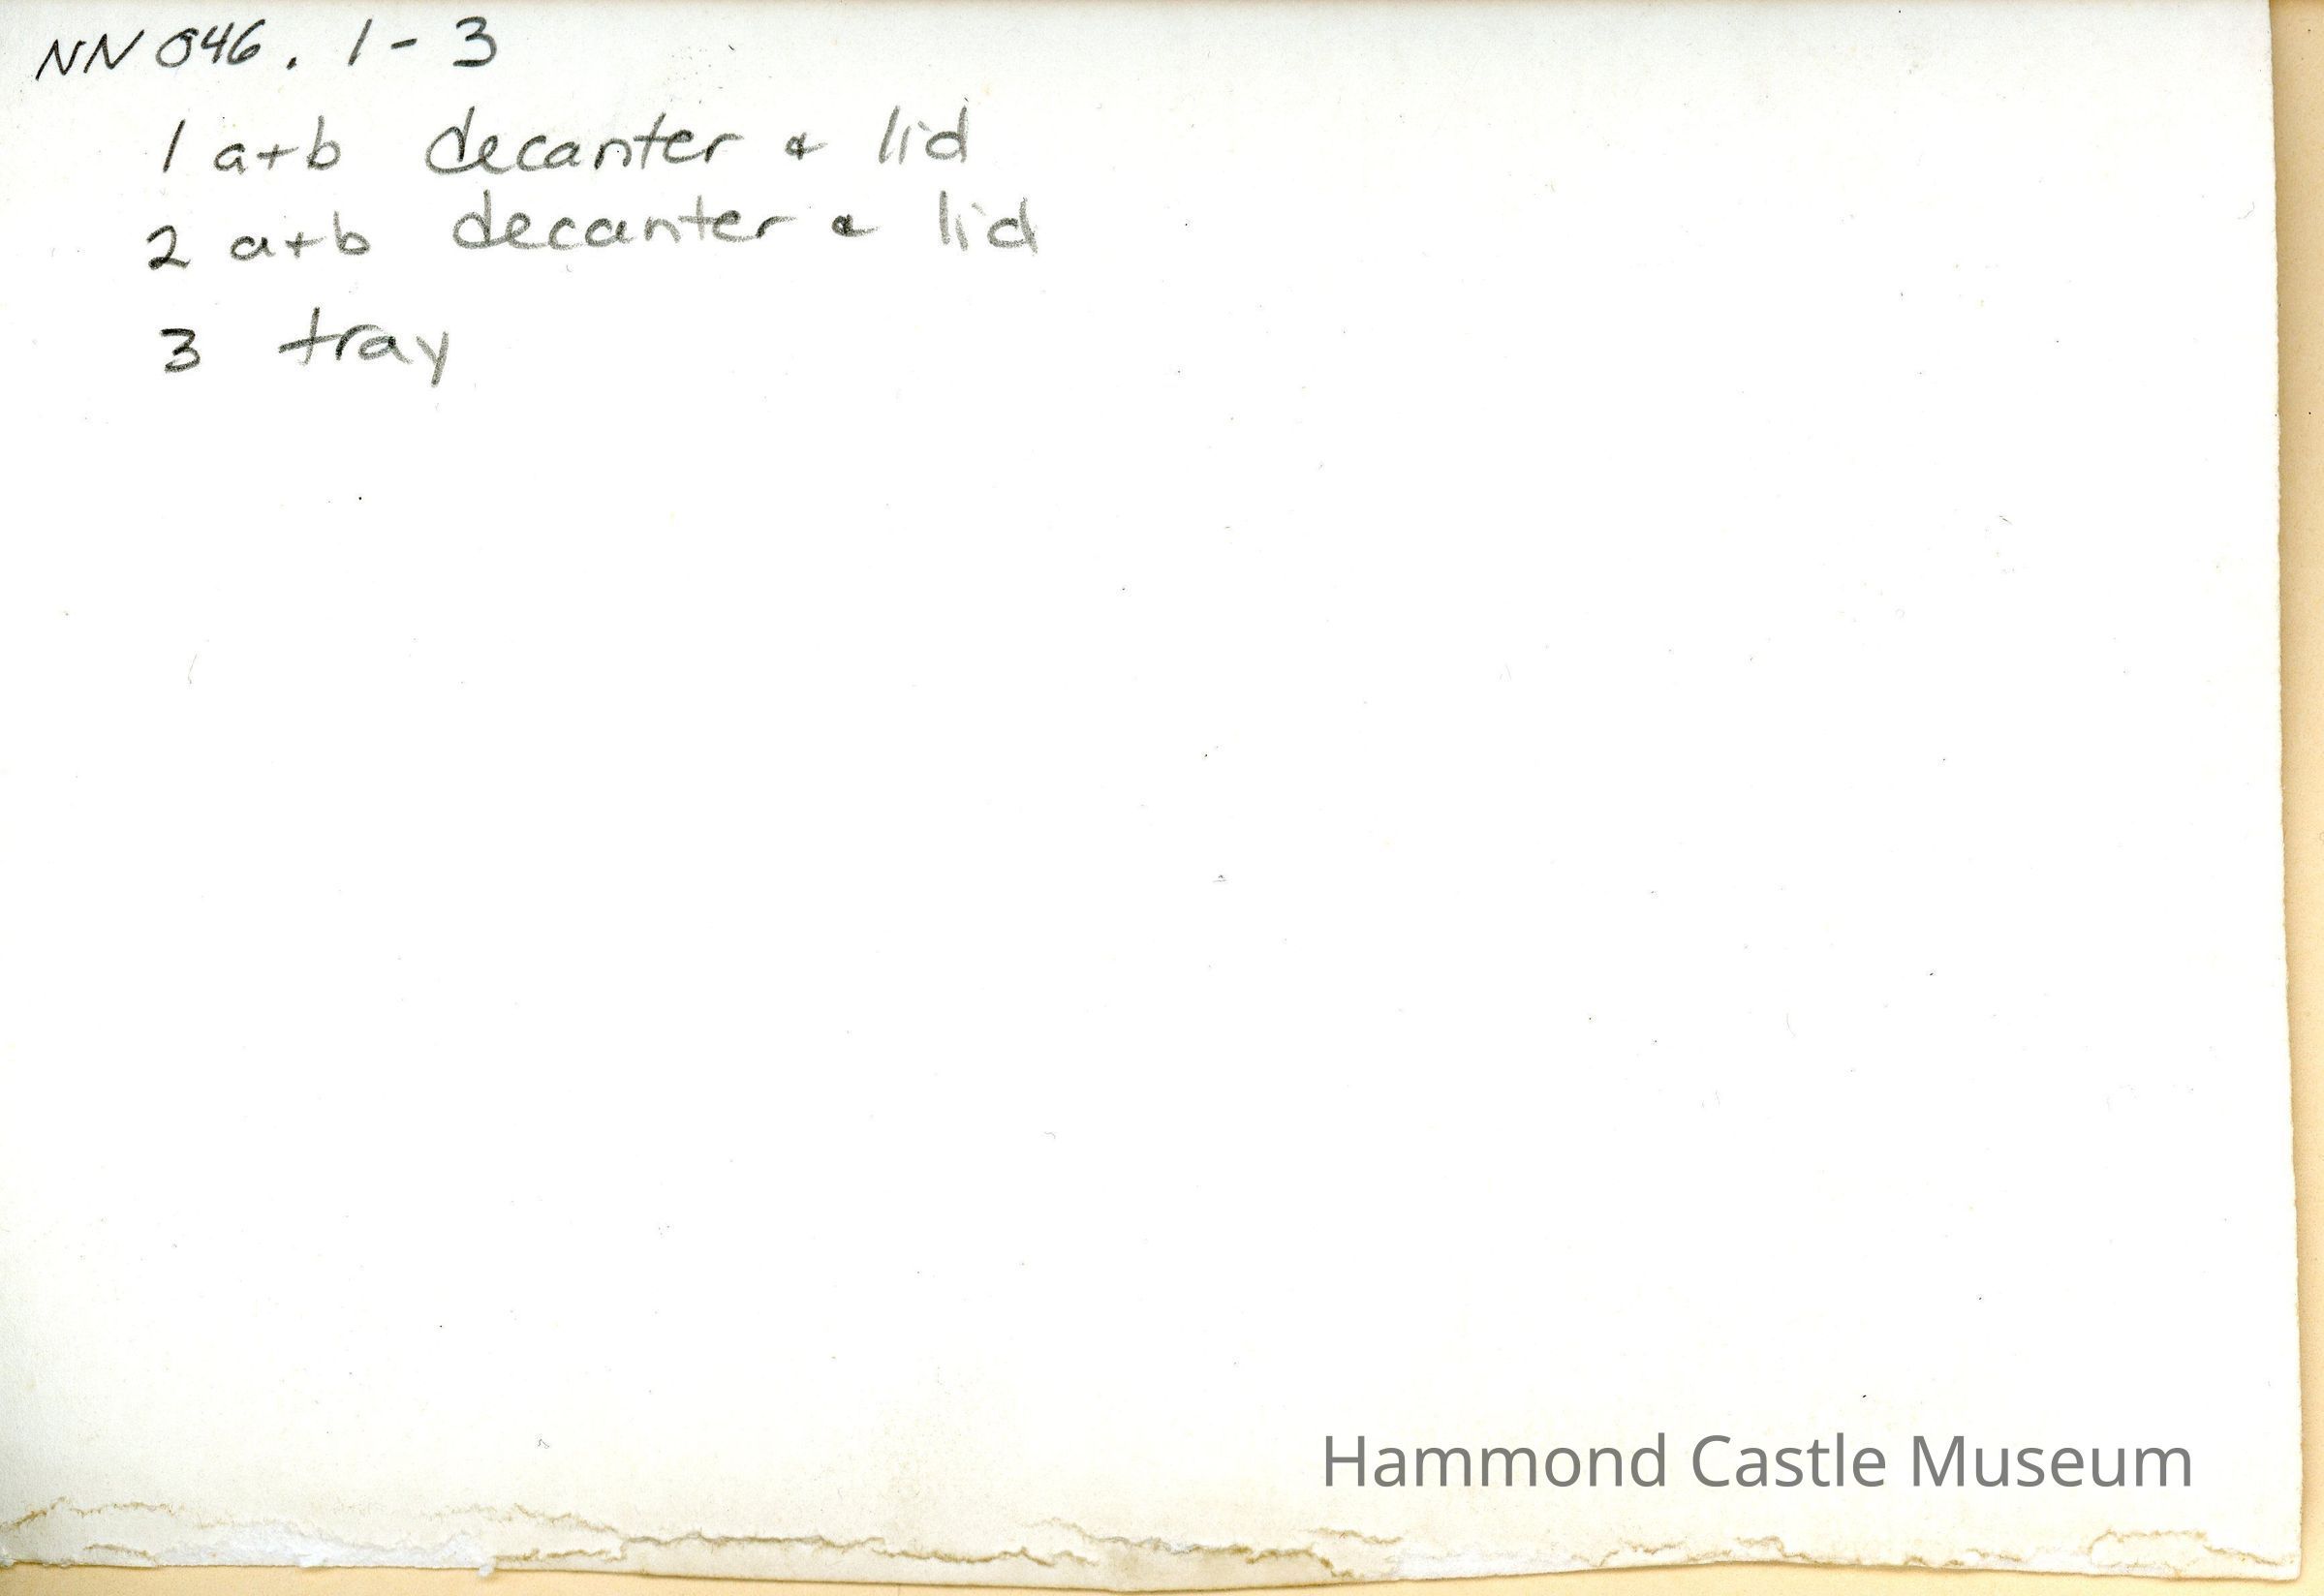 NN 046. 1-3
1 a+b decanter & lid
2 a+b decanter & lid
3 tray
Hammond Castle Museum